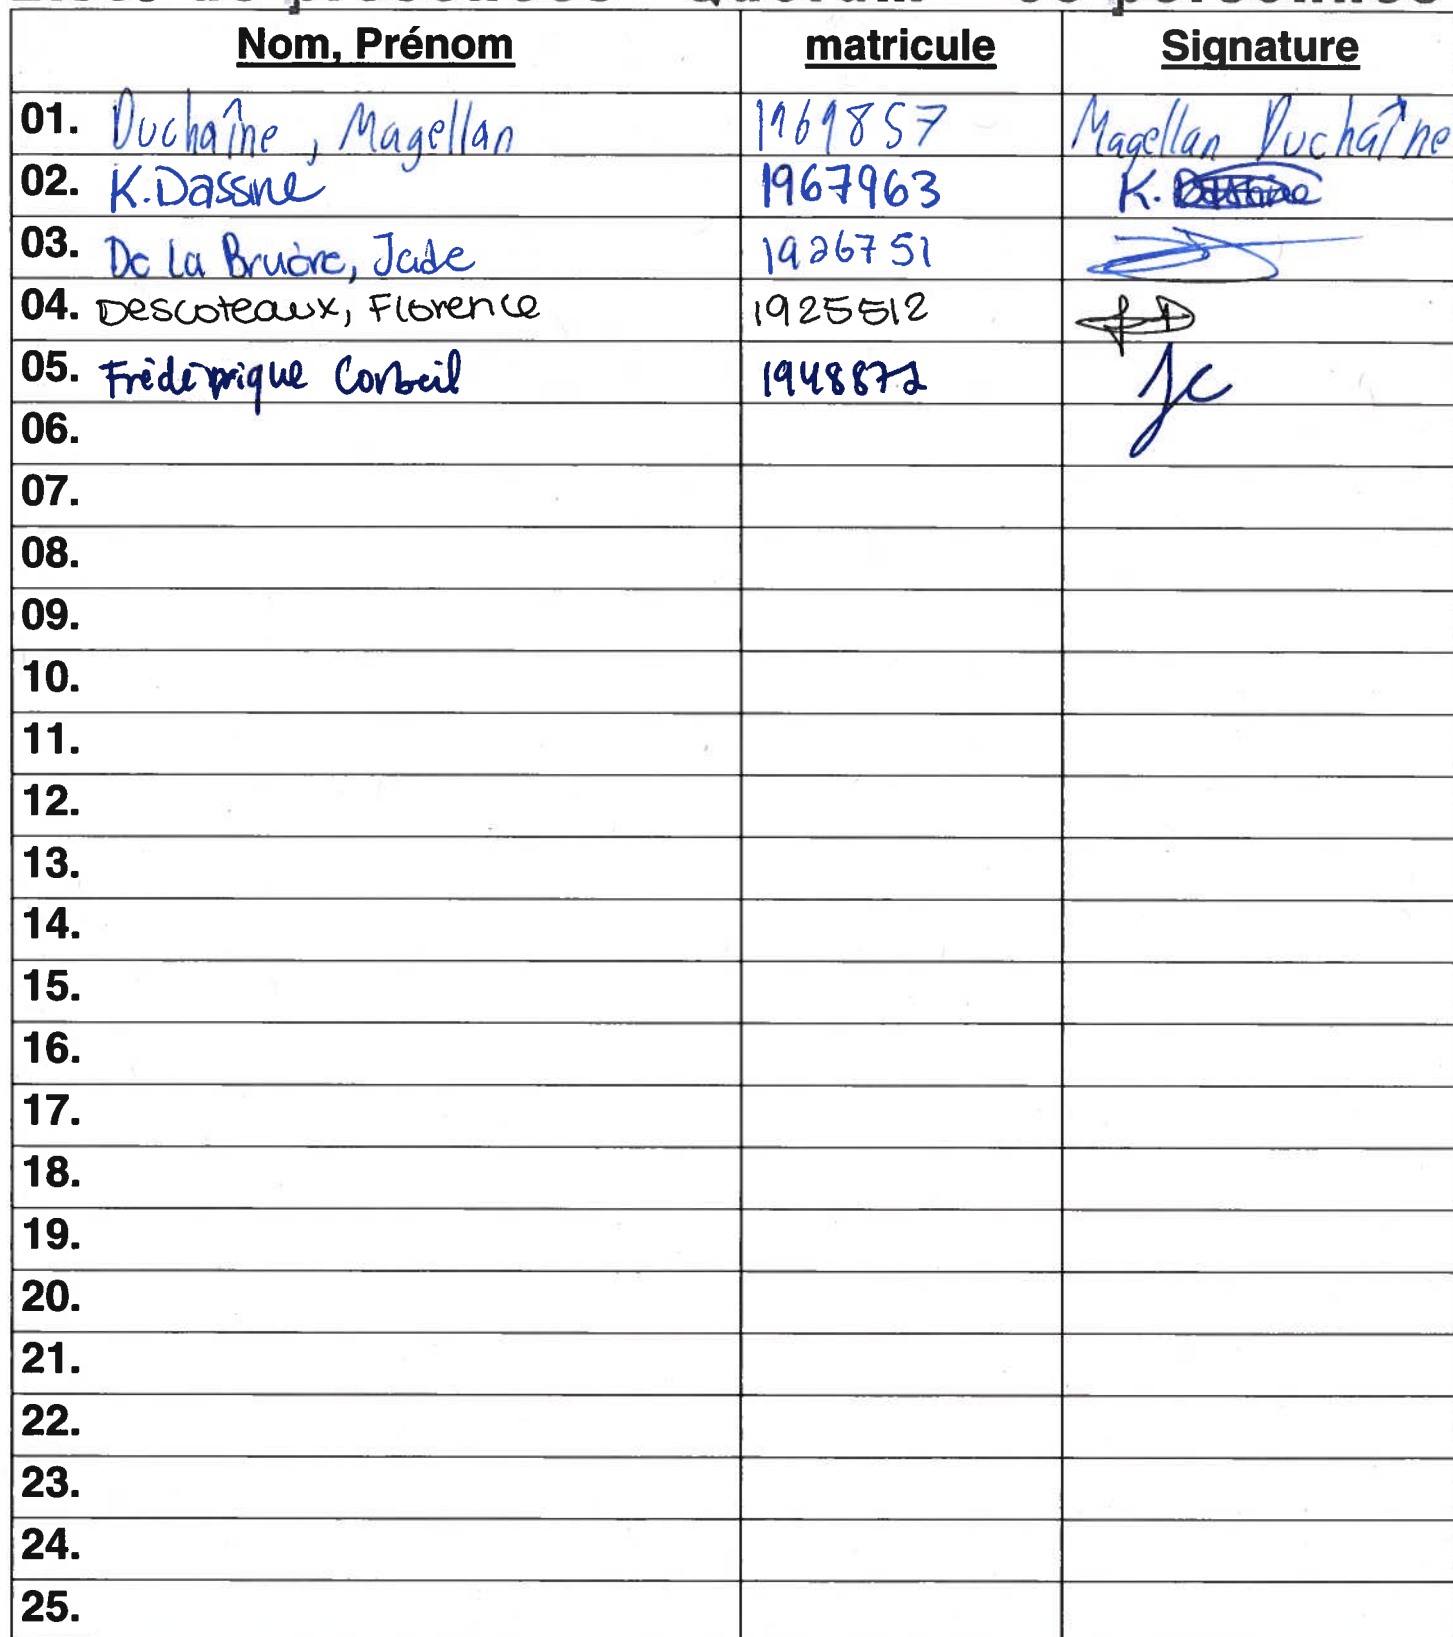 Nom, Prénom matricule Signature
01. Duchaîne, Magellan 1969857 Magellan Duchaîne
02. K.Dassine 1967963 K.
03. De La Bruère, Jade 1926751
04. Descoteaux, Florence 1925512 FD
05. Frédérique Corbeil 1948872 fc
06.
07.
08.
09.
10.
11.
12.
13.
14.
15.
16.
17.
18.
19.
20.
21.
22.
23.
24.
25.